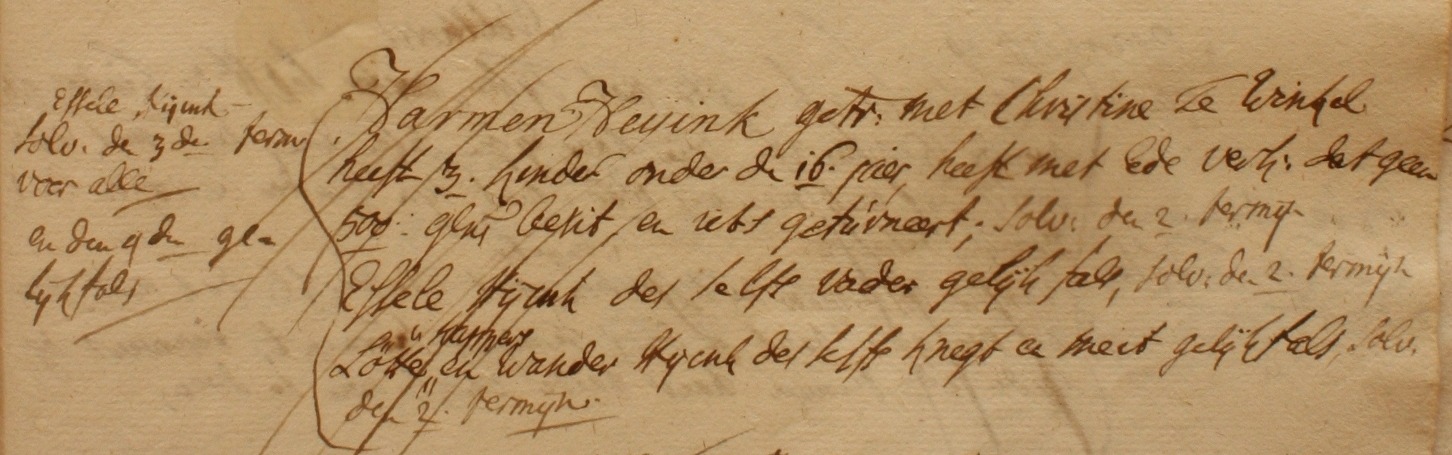 Essele Hijink
solv. de 3 de term
voor alle
en den 4 den ge=
lijk fals
Harmen Heijink getr: met Christine te Winkel
heeft 3. kinder onder de 16. jaer, heeft met Ede verk: dat geen
500: glns besit, en iets geturneert; solv: den 2. termijn
Essele Hijink des selfs vader gelijk fals, solv: den 2. termijn
Lotte en Wander Hijink des selfs knegt en meit gelijk fals, solv.
den 2. termijn.